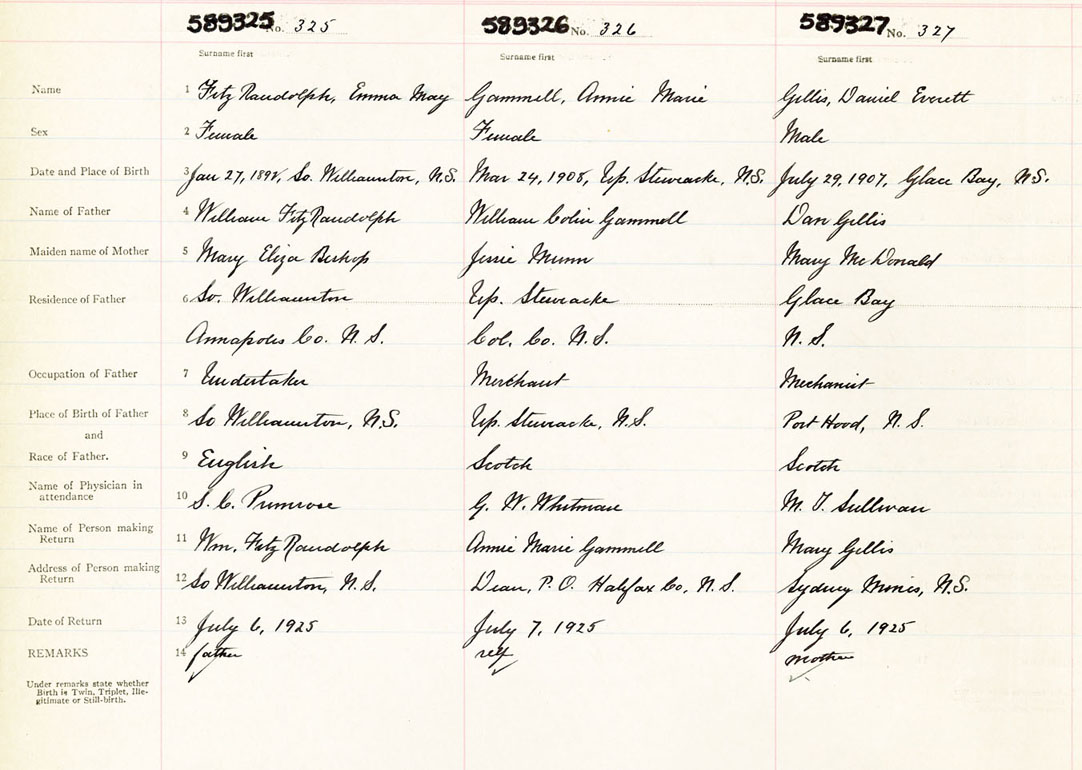 589325 No. 325 589326 No. 326 589327 No. 327
Surname first Surname first Surname first
Name 1 Fitz Randolph, Emma May Gammell, Annie Marie Gillis, Daniel Everett
Sex 2 Female Female Male
Date and Place of Birth 3 Jan 27, So. Williamston, N.S. Mar 24, 1908, Up. Stewiacke, N.S. July 29, 1907, Glace Bay, N.S.
Name of Father 4 William FitzRandolph William Colin Gammell Dan Gillis
Maiden name of Mother 5 Mary Eliza Bishop Jessie Munn Mary McDonald
Residence of Father 6 So. Williamston Up. Stewiacke Glace Bay
Annapolis Co. N.S. Col. Co. N.S. N.S.
Occupation of Father 7 Undertaker Merchant Mechanist
Place of Birth of Father 8 So Williamston, N.S. Up. Stewiacke, N.S. Port Hood, N.S.
and
Race of Father. 9 English Scotch Scotch
Name of Physician in
attendance 10 S. C. Primrose G. W. Whitman M. T. Sullivan
Name of Person making
Return 11 Wm. Fitz Randolph Annie Marie Gammell Mary Gillis
Address of Person making
Return 12 So Williamston, N.S. Dean, P.O. Halifax Co, N.S. Sydney Mines, N.S.
Date of Return 13 July 6, 1925 July 7, 1925 July 6, 1925
REMARKS 14 father self mother
Under remarks state whether
Birth is Twin, Triplet, Ille-
gitimate or Still-birth.